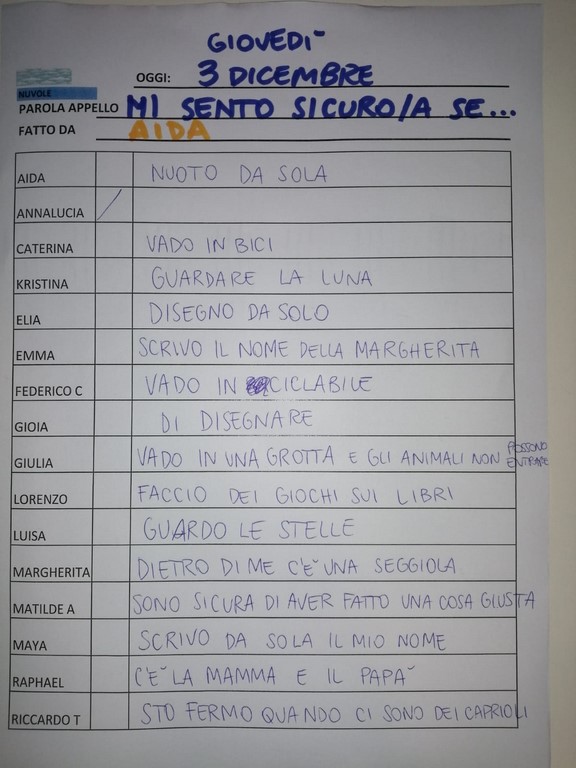 GIOVEDÌ
OGGI: 3 DICEMBRE
NUVOLE
PAROLA APPELLO MI SENTO SICURO/A SE...
FATTO DA AIDA
AIDA NUOTO DA SOLA
ANNALUCIA /
CATERINA VADO IN BICI
KRISTINA GUARDARE LA LUNA
ELIA DISEGNO DA SOLO
EMMA SCRIVO IL NOME DELLA MARGHERITA
FEDERICO C VADO IN CICLABILE
GIOIA DI DISEGNARE
GIULIA VADO IN UNA GROTTA E GLI ANIMALI NON POSSONO ENTRARE
LORENZO FACCIO DEI GIOCHI SUI LIBRI
LUISA GUARDO LE STELLE
MARGHERITA DIETRO DI ME C'È UNA SEGGIOLA
MATILDE A SONO SICURA DI AVER FATTO UNA COSA GIUSTA
MAYA SCRIVO DA SOLA IL MIO NOME
RAPHAEL C'È LA MAMMA E IL PAPÀ
RICCARDO T STO FERMO QUANDO CI SONO DEI CAPRIOLI